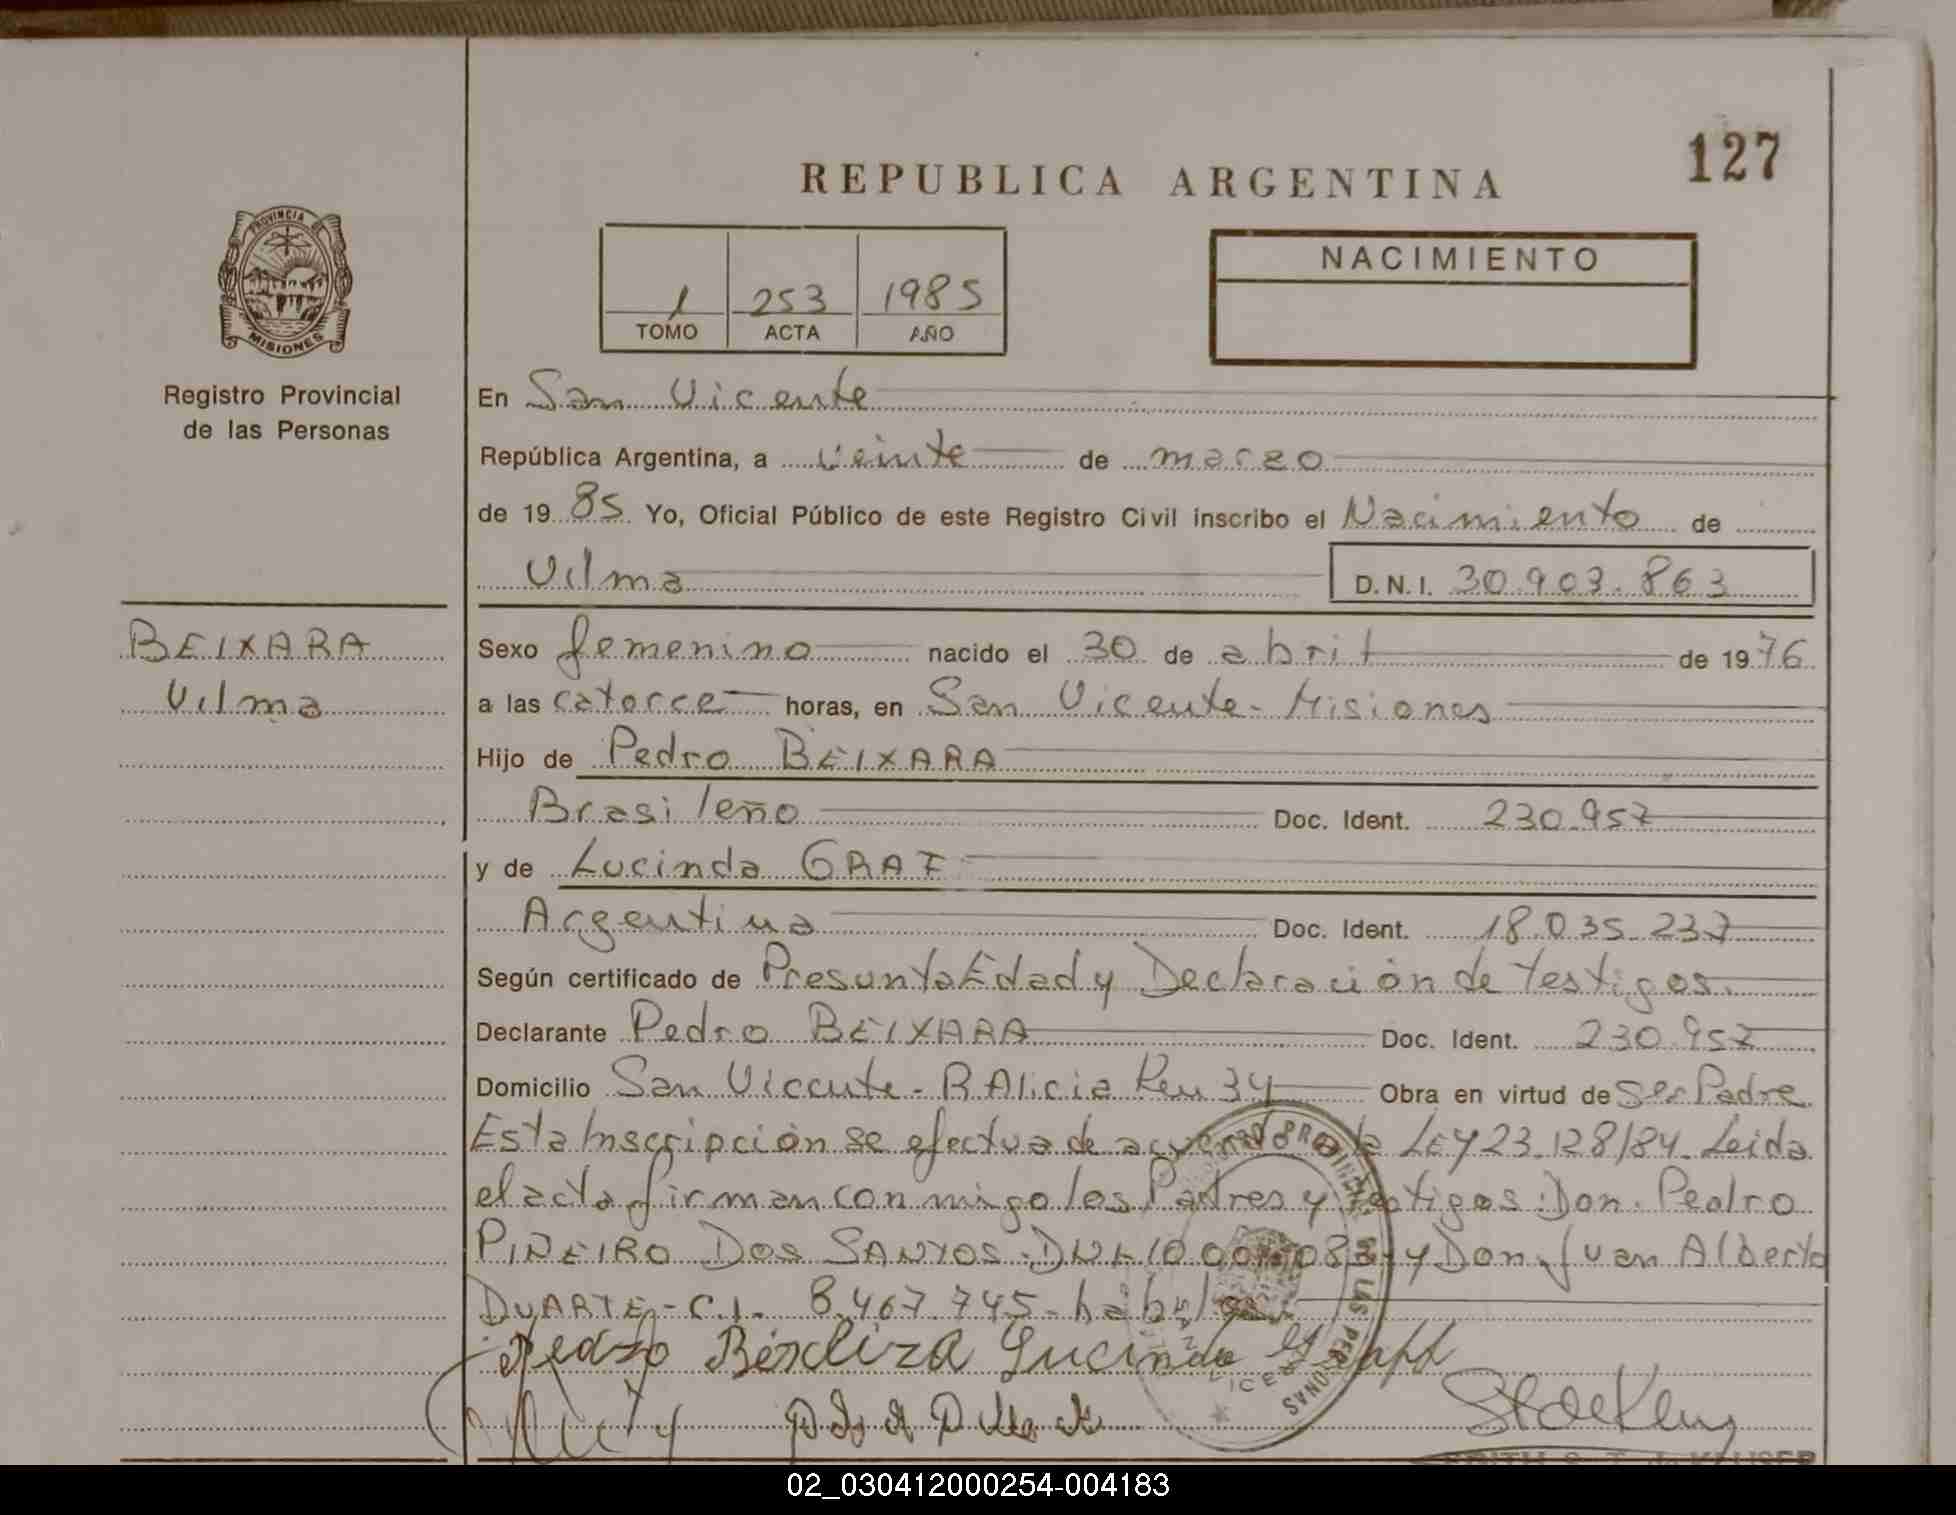 127
REPUBLICA ARGENTINA
PROVINCIA DE
MISIONES
Registro Provincial
de las Personas
1 253 1985
TOMO ACTA AÑO
NACIMIENTO
En San Vicente
República Argentina, a veinte de marzo
de 19 85 Yo, Oficial Público de este Registro Civil inscribo el Nacimiento de
Vilma D.N.I. 30.903.863
BEIXARA
Vilma
Sexo femenino nacido el 30 de abril de 19 76
a las catorce horas, en San Vicente - Misiones
Hijo de Pedro BEIXARA
Brasileño Doc. Ident. 230.957
y de Lucinda GRAF
Argentina Doc. Ident. 18.035.237
Según certificado de Presunta Edad y Declaración de testigos.
Declarante Pedro BEIXARA Doc. Ident. 230.957
Domicilio San Vicente - R Alicia Km 34 Obra en virtud de ser Padre
Esta Inscripción se efectua de acuerdo a la LEY 23.128/84. Leida
el acta firman con migo los Padres y testigos: Don. Pedro
PIÑEIRO DOS SANTOS. DNI. y Don Juan Alberto
DUARTE - C.I. 8.467.745 - habiles
Pedro Lucinda
02_030412000254-004183